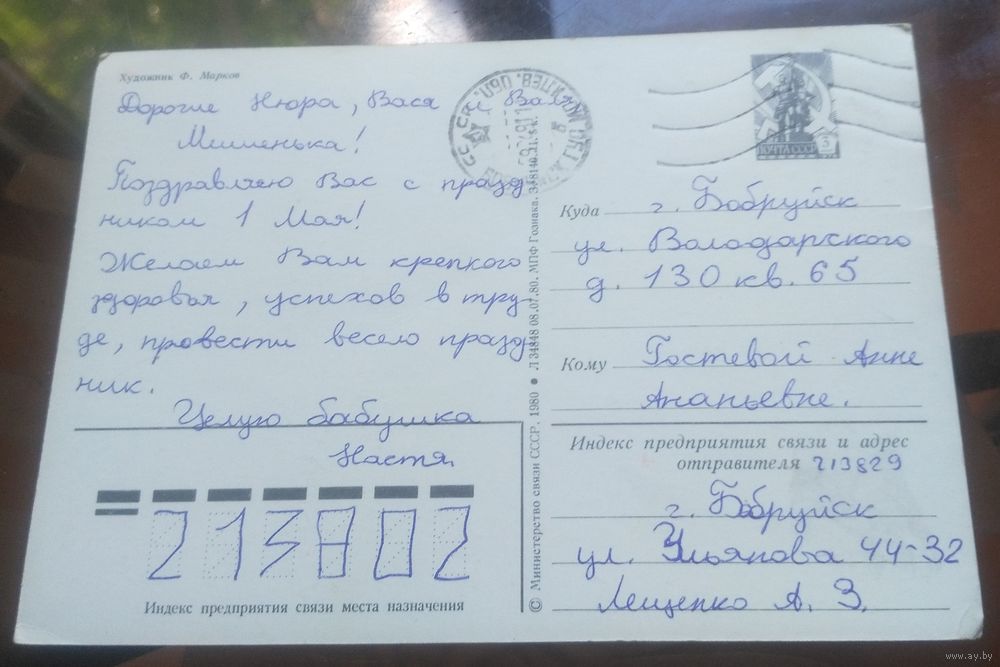 Художник Ф. Марков
Дорогие Нюра, Вася и Валя
Мишенька!
Поздравляю Вас с празд
ником 1 Мая!
Желаем Вам крепкого
здоровья, успехов в тру
де, провести весело празд
ник.
Целую бабушка
Настя.
213802
Индекс предприятия связи места назначения
© Министерство связи СССР. 1980 ● Л 34848 08.07.80. МПФ Гознака.
ПОЧТА СССР
Куда г. Бобруйск
ул. Володарского
д. 130 кв. 65
Кому Гостевой Анне
Ананьевне.
Индекс предприятия связи и адрес
отправителя 213829
г. Бобруйск
ул. Ульянова 44-32
Лещенко А. З.
www.ay.by